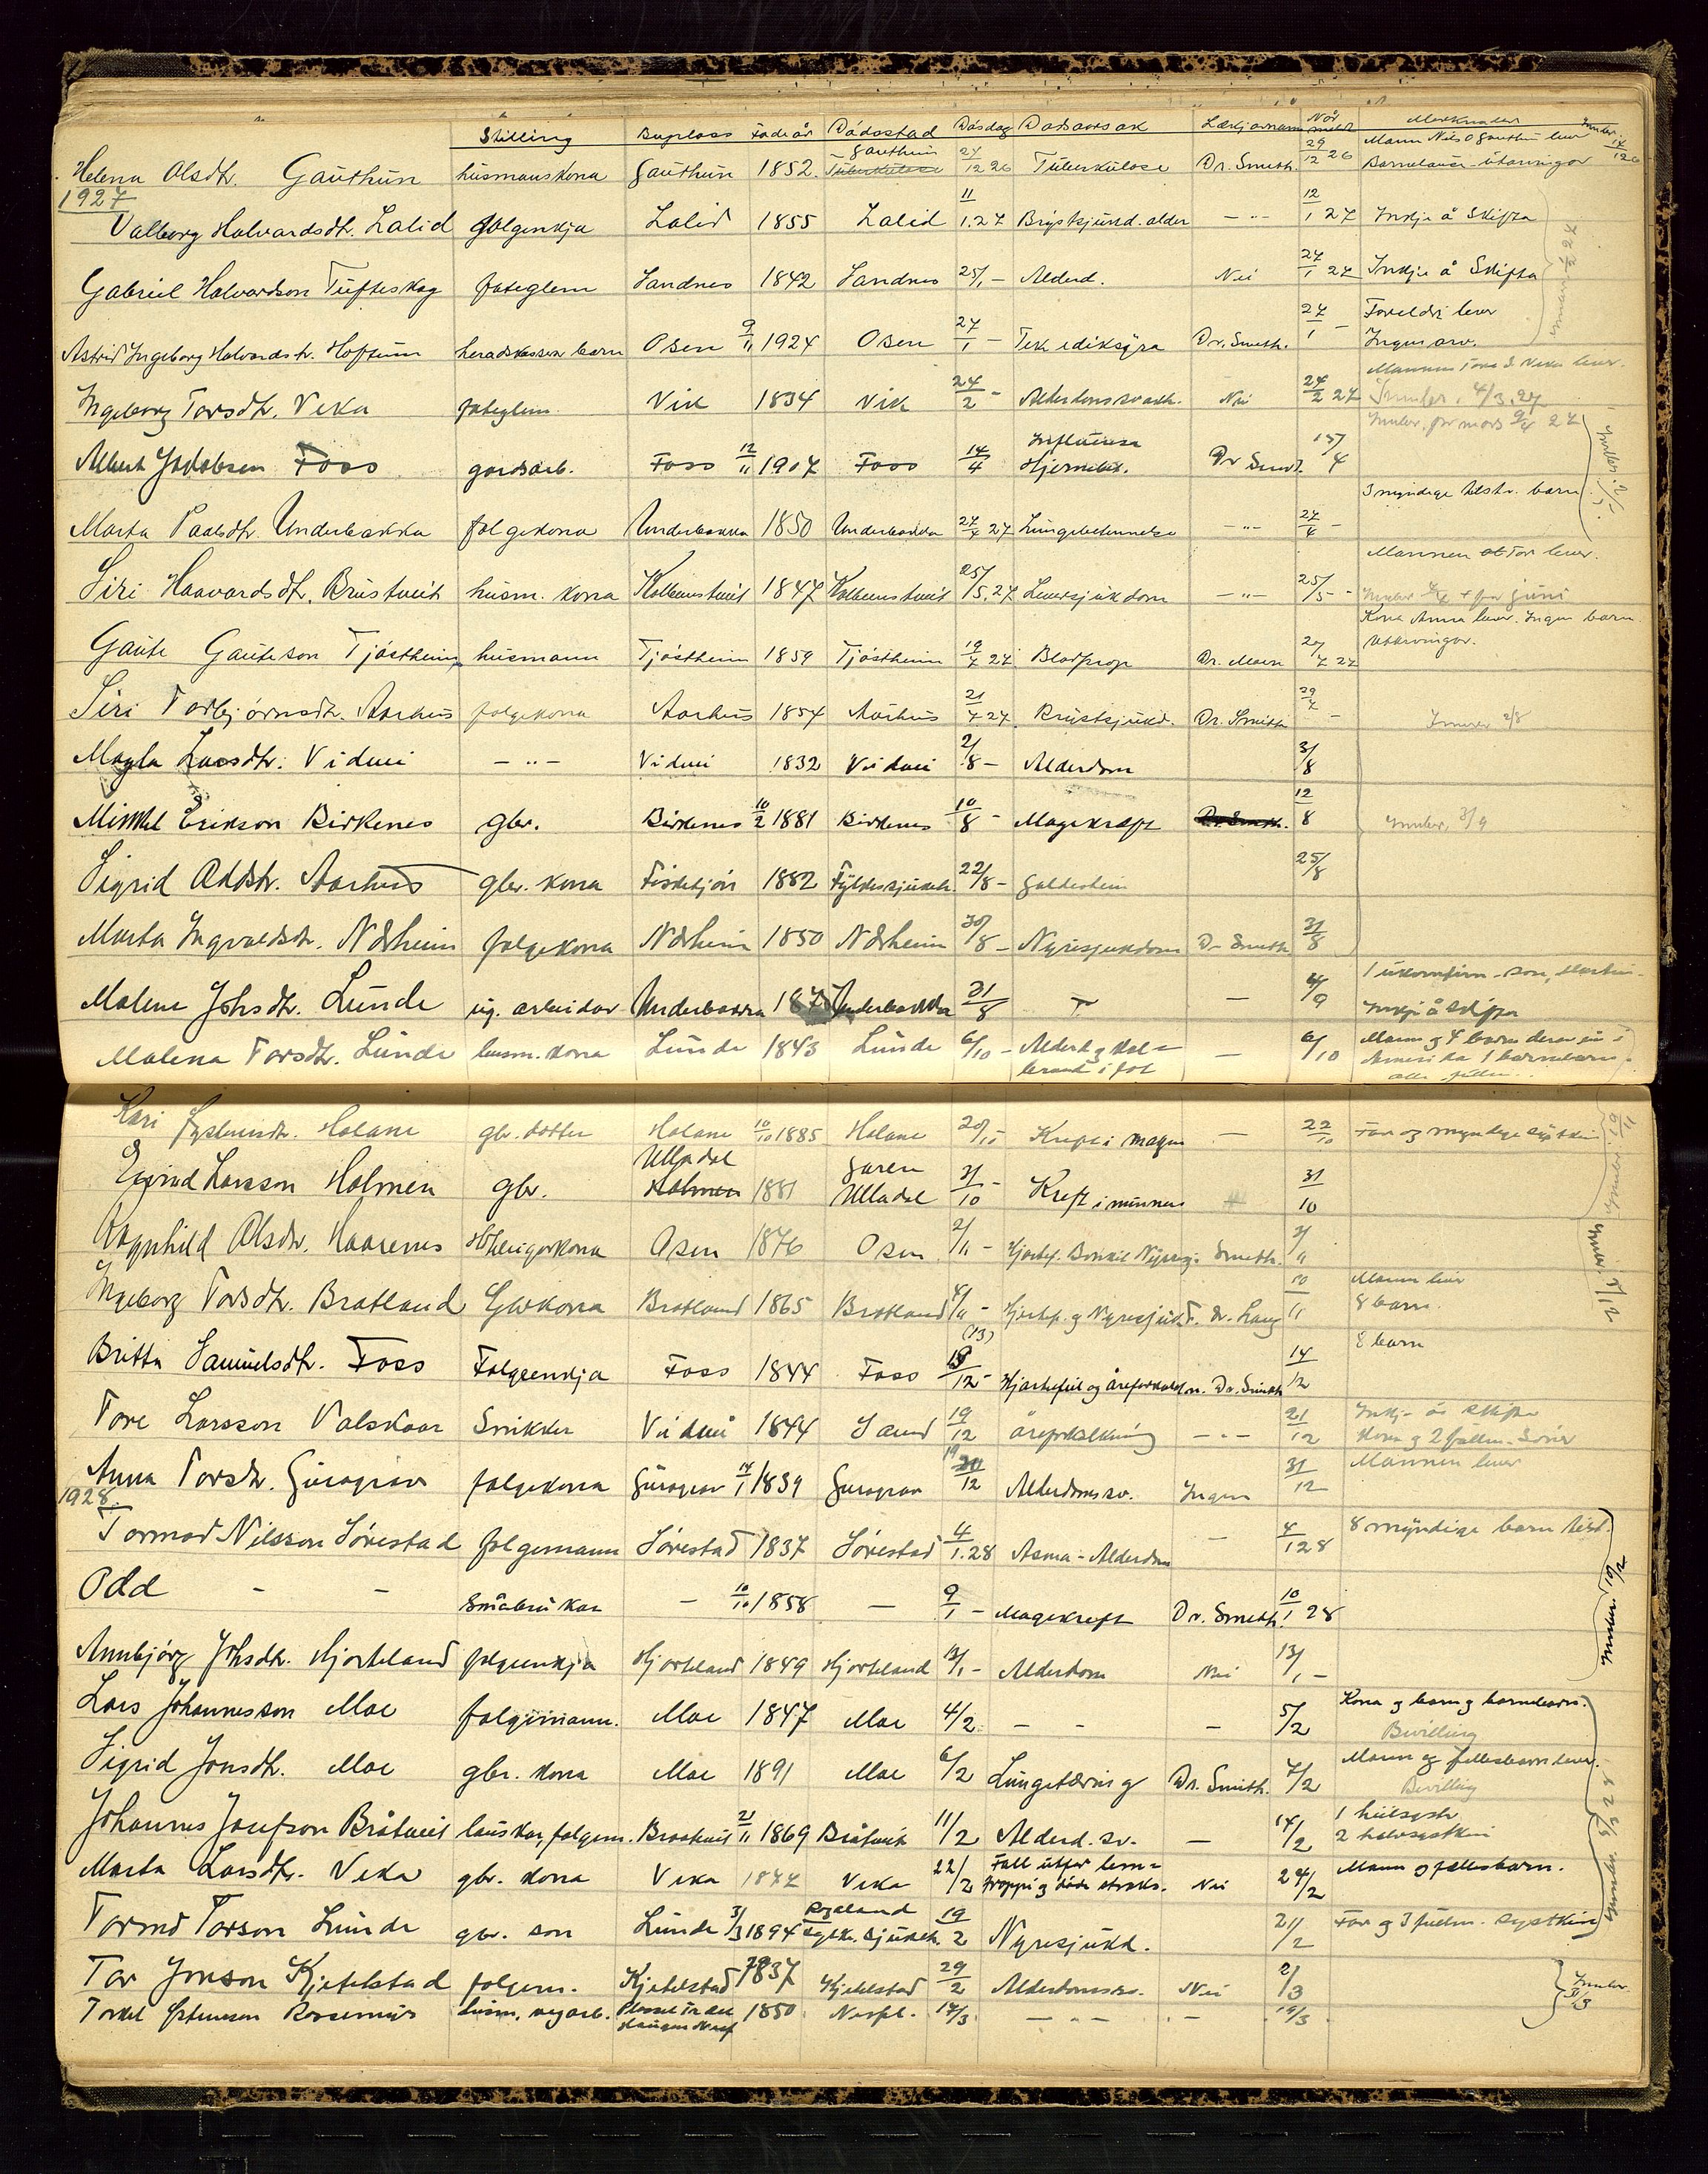 Stilling Buplass Fødeår Dødsstad Dødsdag Dødsårsak Lækjarnamn Når meldt Merknader
Helena Olsdtr. Gauthun husmannskona Gauthun 1852 Gauthun 27/12 26 Tuberkulose Dr. Smith. 29/12 26 Mann Nils O Gauthun lever Barnelaus - utarvingar
1927
Valborg Halvardsdtr. Lalid folgenkja Lalid 1855 Lalid 11/1.27 Brystsjukd. alder -"- 12/1 27 Inkje å Skifta
Gabriel Halvardson Tufteskog fateglem Sandnes 1842 Sandnes 25/1 - Alderd. Nei 27/1 27 Inkje å Skifta
Astrid Ingeborg Halvardsdtr. Hoftun heradskasserar barn Osen 9/11 1924 Osen 27/1 - Dr. Smith. 27/1 - Foreldri lever Ingen arv.
Ingeborg Torsdtr. Veka fateglem. Vik 1834 Vik 24/2 - Alderdomssvakh. Nei 24/2 27 Mannen Tore S Veka lever. Innber. 4/3.27
Albert Jakobsen Foss gardsarb. Foss 12/11 1907 Foss 14/4 Influensa Hjernebet. Dr Smith. 15/4
Marta Paalsdtr. Underbakka folgekona Underbakka 1850 Underbakka 27/4 27 Lungebetennelse -"- 27/4 - 3 myndige barn
Siri Haavardsdtr. Brustveit husm. kona Kolbeinstveit 1847 Kolbeinstveit 25/5.27 Leversjukdom -"- 25/5 - Mannen Tor lever.
Gaute Gauteson Tjøstheim husmann Tjøstheim 1859 Tjøstheim 19/7 27 Blodprop Dr. Moen 20/7 27 Kona Anna lever. Ingen barn. Utarvingar.
Siri Torbjørnsdtr. Aarhus folgekona Aarhus 1854 Aarhus 21/7 27. Brystsjukd. Dr. Smith 29/7 - Innber 2/8
Magla Larsdtr. Vidvei -"- Vidvei 1832 Vidvei 2/8 - Alderdom 3/8
Mikkel Erikson Birkenes gbr. Birkenes 10/2 1881 Birkenes 10/8 - Magekræft 12/8 Innber. 3/9
Sigrid Oddsdtr. Aarhus gbr. kona Fisketjøn 1882 Fylkessjukeh. 22/8 - Gallestein 25/8
Marta Ingvaldsdtr. Nærheim folgekona Nærheim 1850 Nærheim 30/8 - Nyresjukdom Dr Smith 31/8
Malene Johsdtr. Lunde ug. arbeidar Underbakka Underbakka 31/8 - 4/9 Inkje å skifta
Malena Torsdtr. Lunde husm. kona Lunde 1843 Lunde 6/10 - Alderd og kolbrand i fot - 6/10 Mann og 4 barn derav ein i Amerika 1 barnebarn
Kari Øysteinsdtr. Helane gbr. dotter Helane 10/10 1885 Helane 20/10 Kreft i magen - 22/10 Far og myndige systkin
Eivind Larsson Holmen gbr. Ulladal Holmen 1881 Garen Ulladal 31/10 - Kreft i munnen 31/10
Ragnhild Olsdtr. Haarenes Osen 1876 Osen 2/11 - Smith. 3/11
Ingeborg Torsdtr. Bratland Gbrkona Bratland 1865 Bratland 4/11 - Hjartef. og Nyresjukd. Dr. Lang 10/11 Mann lever 8 barn.
Britta Samuelsdtr. Foss Folgeenkja Foss 1844 Foss (13) 13/12 - Hjartefeil og åreforkalkn. Dr. Smith 14/12 8 barn
Tore Larsson Valskaar Snikkar Vidvei 1844 Sand 19/12 åreforkalkning -"- 21/12 Inkje å skifta Kona og 2 fullm. Søner
Anna Torsdtr. Guragrav folgekona Guragrav 14/1 1839 Guragrav 19/12 Alderdomssv. Ingen 31/12 Mannen lever
1928.
Tormod Nilsson Sørestad folgemann Sørestad 1837 Sørestad 4/1.28 Asma - Alderdom - 4/1 28 8 myndige barn
Odd - - Småbrukar - 10/10 1858 - 9/1 - Magekreft Dr. Smith. 10/1 28
Annbjørg Johsdtr. Hjorteland folgeenkja Hjorteland 1849 Hjorteland 13/1 - Alderdom Nei 13/1 - Innber. 10/2
Lars Johannesson Moe folgemann. Moe 1847 Moe 4/2 - - - 5/2 Kona og barn og barnebarn. Bevilling
Sigrid Jonsdtr. Moe gbr. kona Moe 1891 Moe 6/2 Lungetæring Dr. Smith. 7/2 Mann og fellesbarn lever. Bevilling
Johannes Josefson Bråtveit lauskar, folgem. Braatveit 21/11 1869 Bråtveit 11/2 Alderd. sv. - 14/2 1 heilsystr 2 halvsystkin
Marta Larsdtr. Veka gbr. kona Veka 1847 Veka 22/2 Fall utfor lemtroppi og døde straks. Nei 24/2 Mann og fellesbarn.
Tormod Torson Lunde gbr. son Lunde 3/3 1894 Rogaland fylk. sjukeh. 19/2 Nyresjukd. 21/2 Far og 3 fullm. systkin
Tor Jonson Kjetelstad folgem. Kjetelstad 1837 Kjetelstad 29/2 Alderdomssv. Nei 2/3 Innber.
Torkel Østeinson Rossemyr husm. vegarb. 1850 17/3 - " - - 19/3